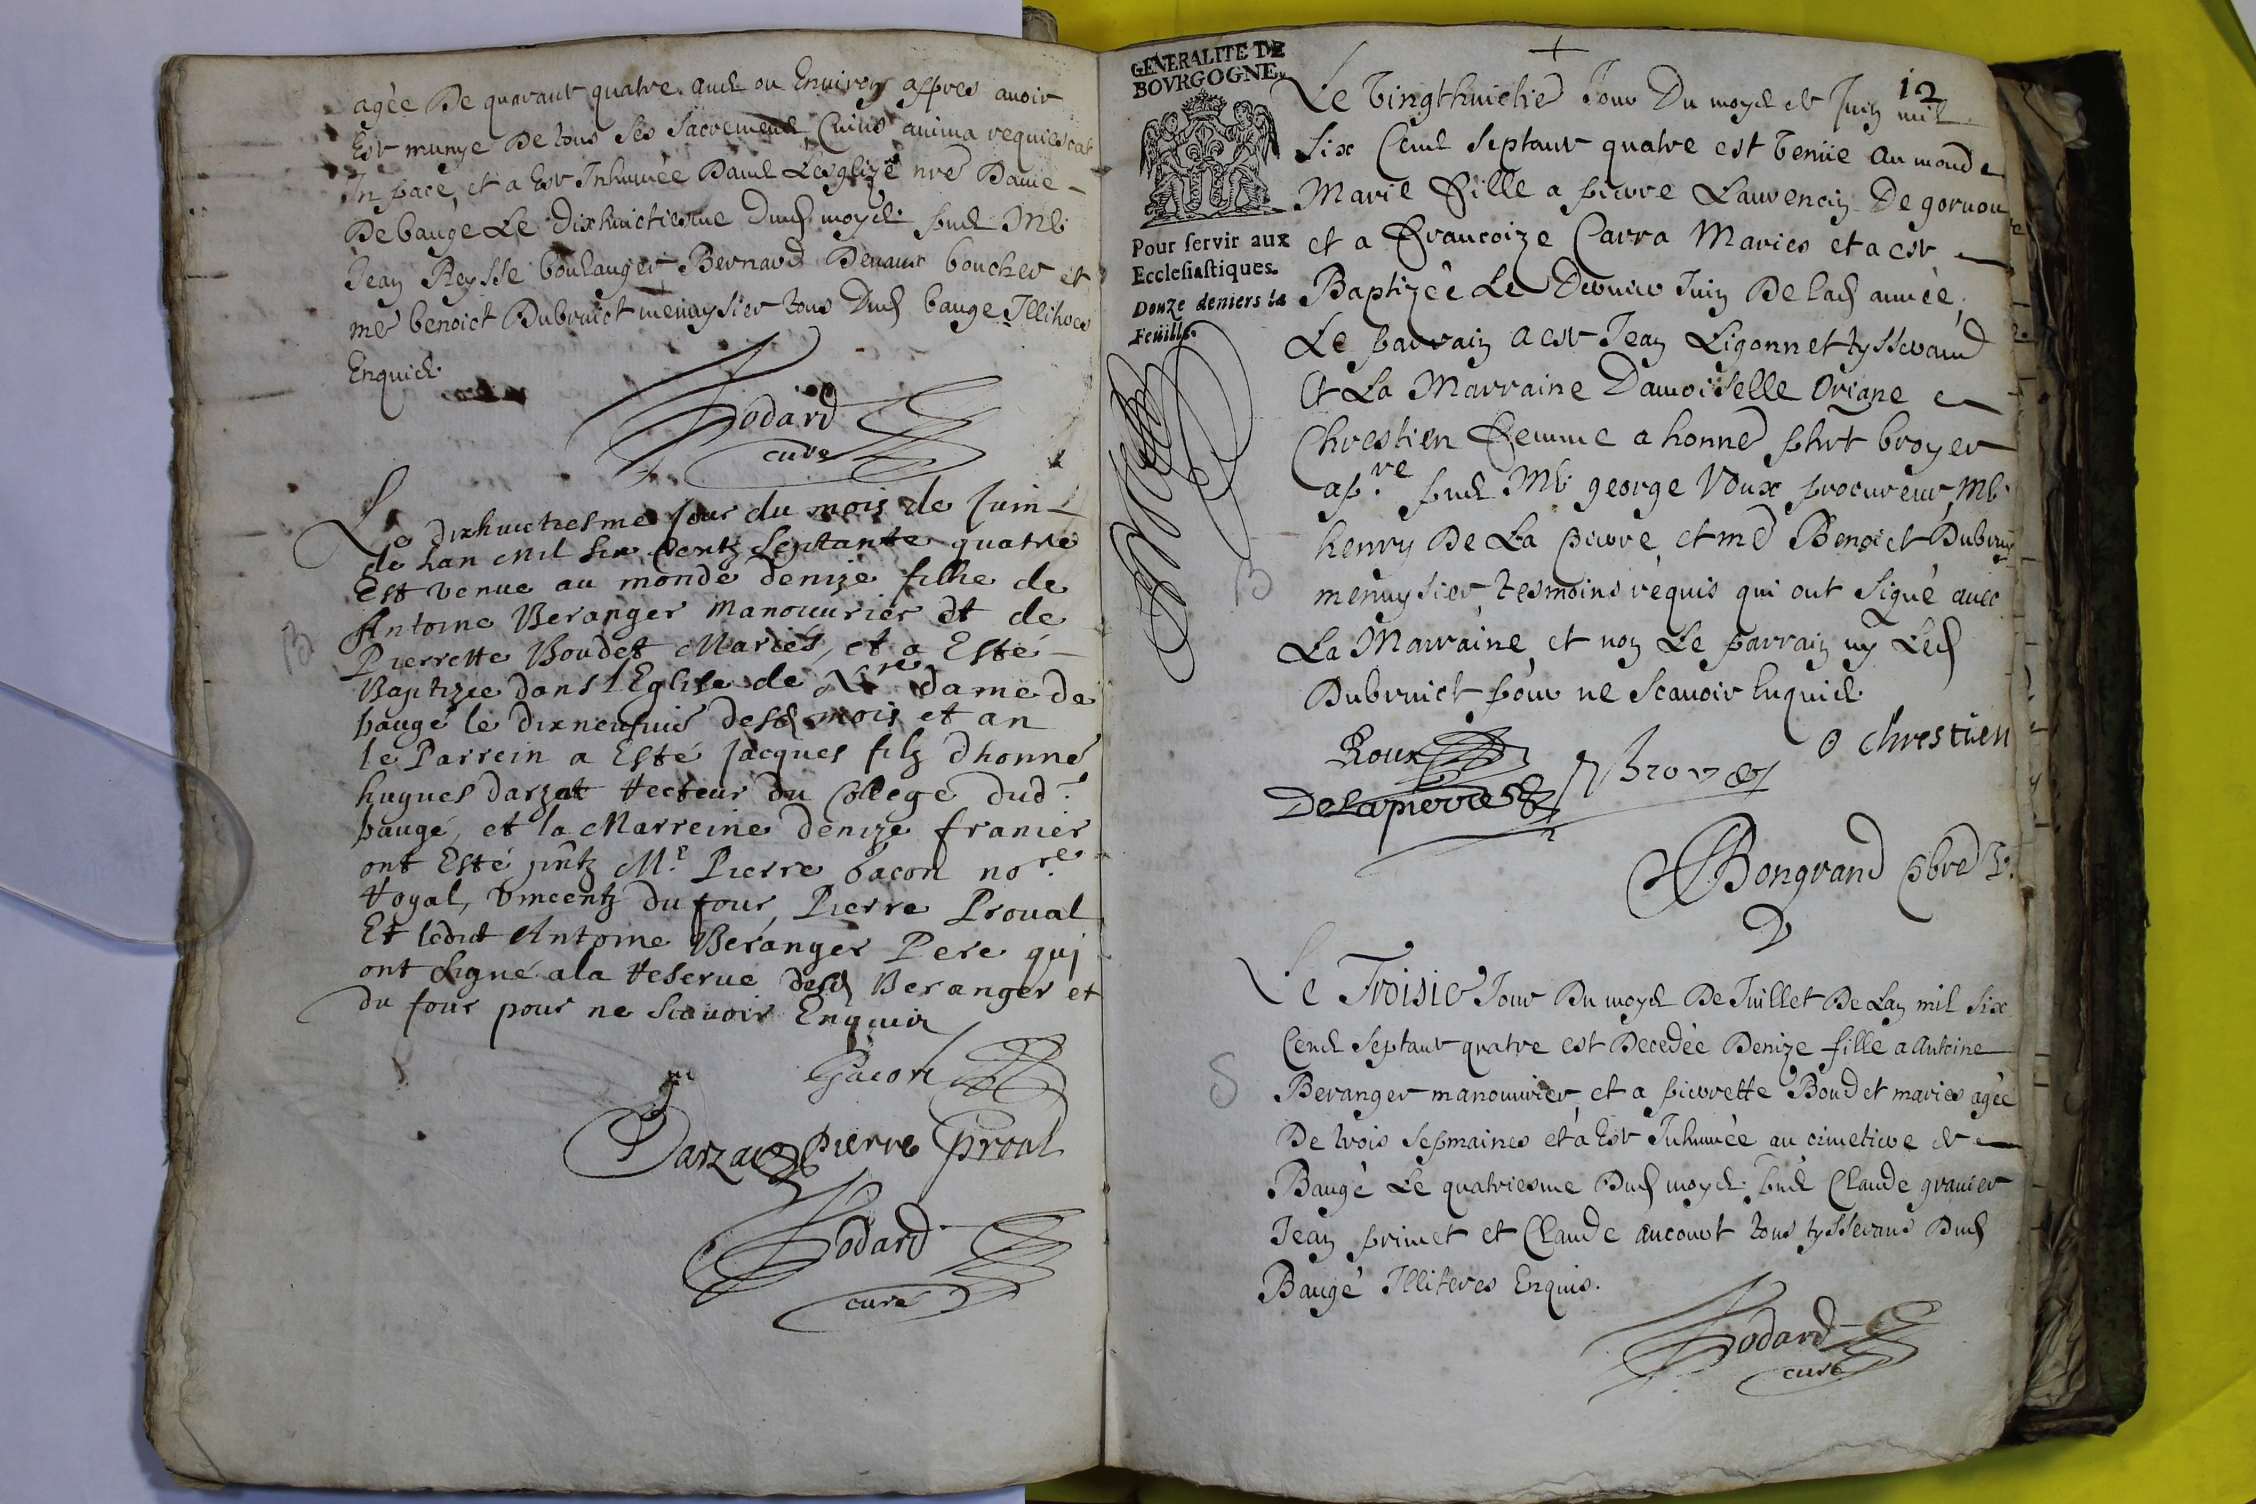 agée De quarant quatre ans ou Environ appres avoir
Est munye De tous ses sacremens Cuius anima requiescat
In pace, et a Est Inhumée Dans L'esglize nre Dame
De baugé Le dixhuictiesme Dud moys. pns Me
Jean Reysse boulanger Bernard Devaux boucher et
me benoict Dubruict menuysier tous Dud bauge Illitres
Enquis.
Hodard
curé
Le dixhuictiesme jour du mois de Juin
de Lan mil six Centz Septante quatre
Est venue au monde denize filhe de
Antoine Beranger manouurier et de
Pierrette Boudet Mariés, et a Esté
Baptizee dans l'Eglise de Nre dame de
baugé le dixneufuie desd mois et an
le Parrein a Esté Jacques filz d'honné
hugues darzat recteur du College dud.
baugé, et la Marreine denize franier
ont Esté pntz Mr. Pierre Gacon nore.
royal, Vincentz du four, Pierre Proual
Et ledict Antoine Beranger Pere qui
ont signé a la reserue desd Beranger et
du four pour ne scauoir Enquis
Gacon
Darzat Pierre Proul
Hodard
curé
GENERALITE DE
BOVRGOGNE.
Pour servir aux
Ecclesiastiques.
Douze deniers la
Feüille.
12
Le Vingthuictie Jour Du moys de Juin mil
Six Cens septant quatre est Venüe au monde
Marie fille a pierre Laurencin De goruou
et a francoize Carra Maries et a est
Baptizée Le Dernier Juin De lad année,
Le parrain a est Jean Ligonnet tysserand
Et La Marraine Damoiselle Oriane
Chrestien femme a honné phrt broyer
apre. pns Me george Roux procureur, Me
henry De La pierre et me Benoict Dubruict
menuysier, tesmoins requis qui ont signé auec
La Marraine et non Le parrain ny Led
Dubruict pour ne scauoir Enquis.
Roux Broyer O chrestien
Delapierre
Bongrand pbre
Le Troisie Jour Du moys De Juillet De Lan mil six
Cens septant quatre est Decedée Denize fille a Antoine
Beranger manouurier, et a pierrette Boudet maries agée
De trois sepmaines et a Est Inhumée au cimetiere de
Baugé Le quatriesme Dud moys. pns Claude granier
Jean primet et Claude aucourt tous tysserans Dud
Baugé Illiteres Enquis.
Hodard
curé